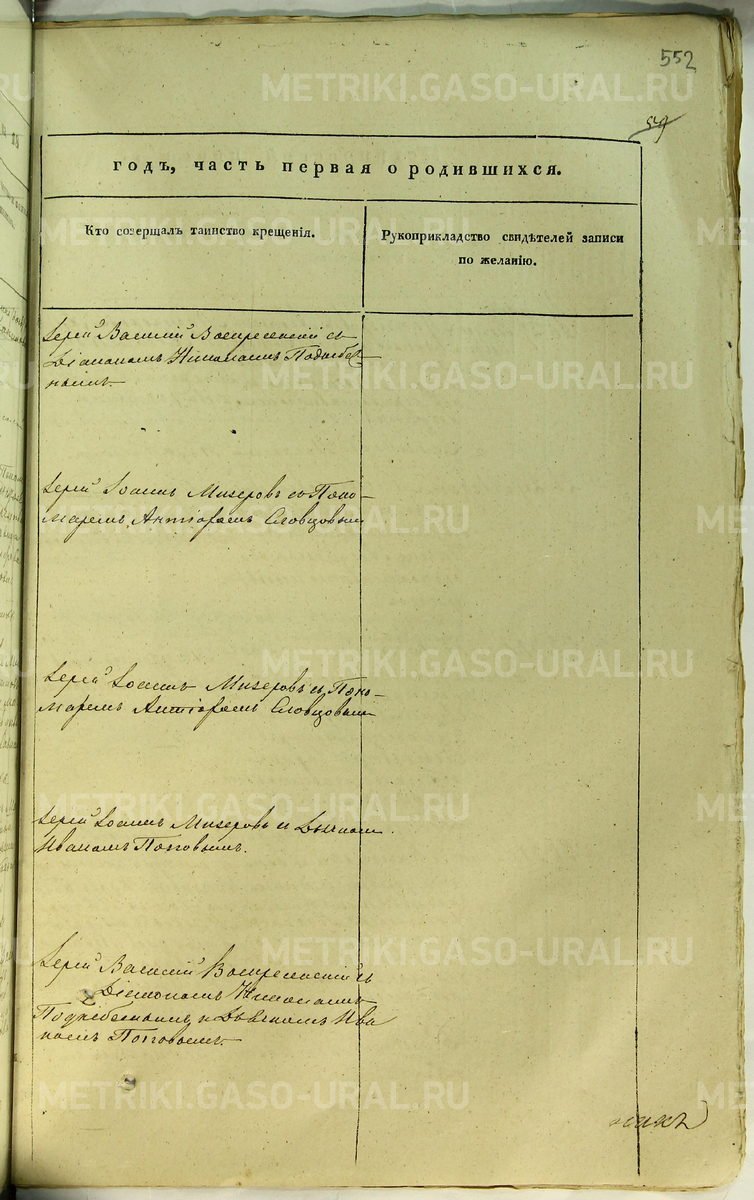 552
годъ, часть первая о родившихся.
Кто совершалъ таинство крещенія.
Рукоприкладство свидѣтелей записи
по желанію.
Іерей Василій Воскресенскій съ
Діакономъ Николаемъ
Іерей Іоаннъ Мизеровъ съ Поно-
маремъ Словцовымъ
Іерей Іоаннъ Мизеровъ съ Поно-
маремъ Словцовымъ
Іерей Іоаннъ Мизеровъ съ Дьячкомъ
Иваномъ Поповымъ.
Іерей Василій Воскресенскій съ
Діакономъ Николаемъ
и Дьячкомъ Ива
номъ Поповымъ.
METRIKI.GASO-URAL.RU